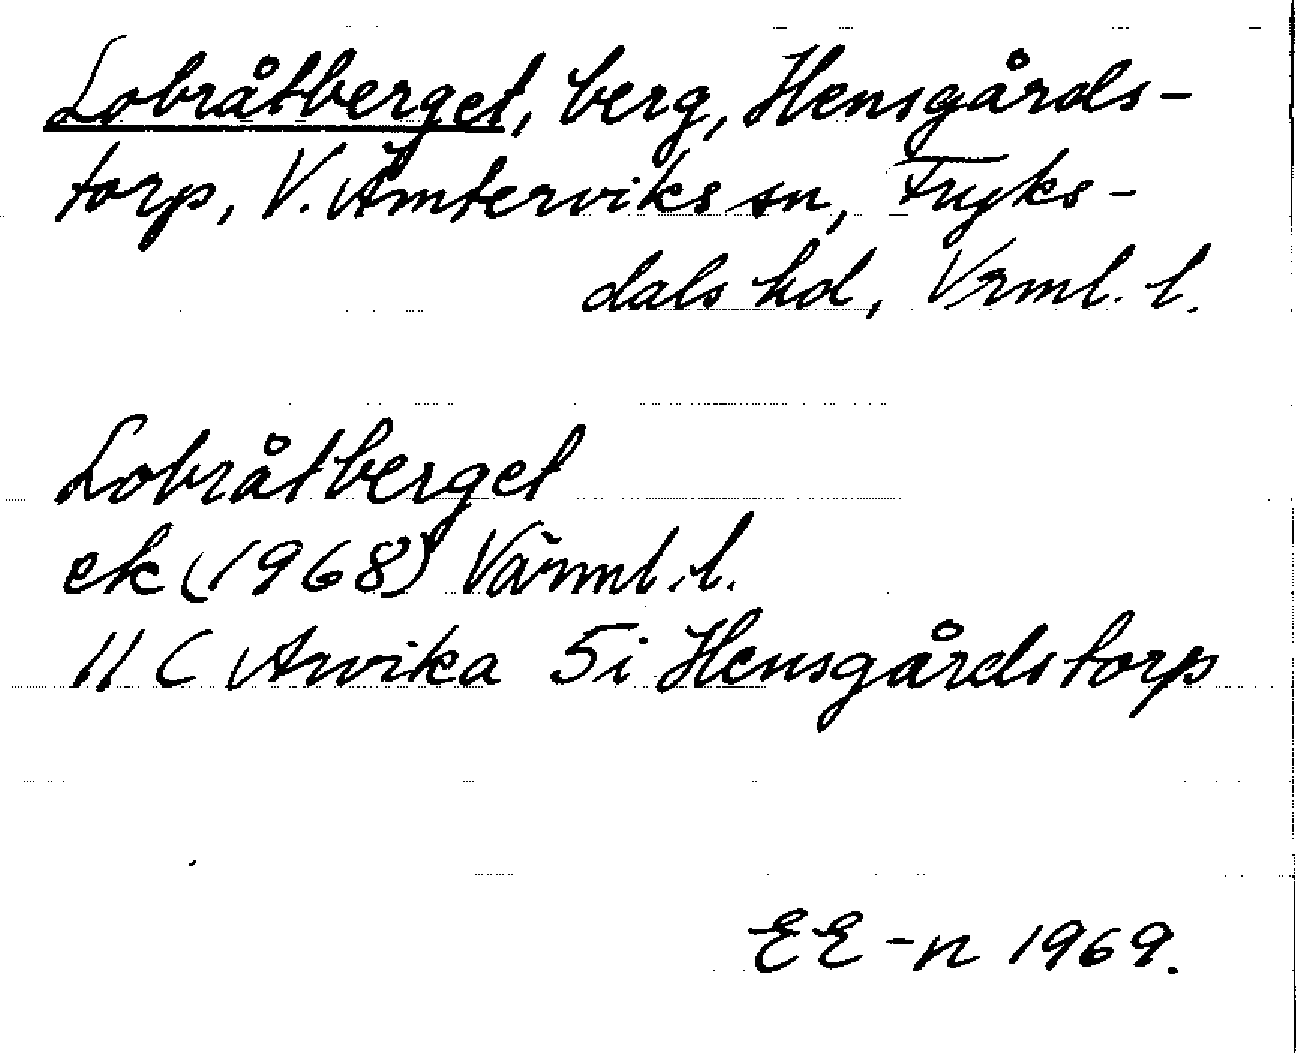 Lobråtberget, berg, Hensgårds-
torp, V. Ämterviks sn, Fryks-
dals hd, Vrml. l.
Lobråtberget
ek (1968) Värml. l.
11 C Arvika 5i Hensgårdstorp
EE-n 1969.